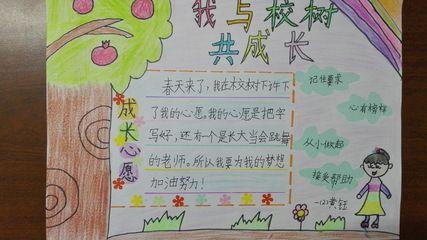 我与校树
共成长
成长心愿
春天来了，我在校树下许下
了我的心愿。我的心愿是把字
写好，还有一个是长大当会跳舞
的老师。所以我要为我的梦想
加油努力！
记住要求
心有榜样
从小做起
接受帮助